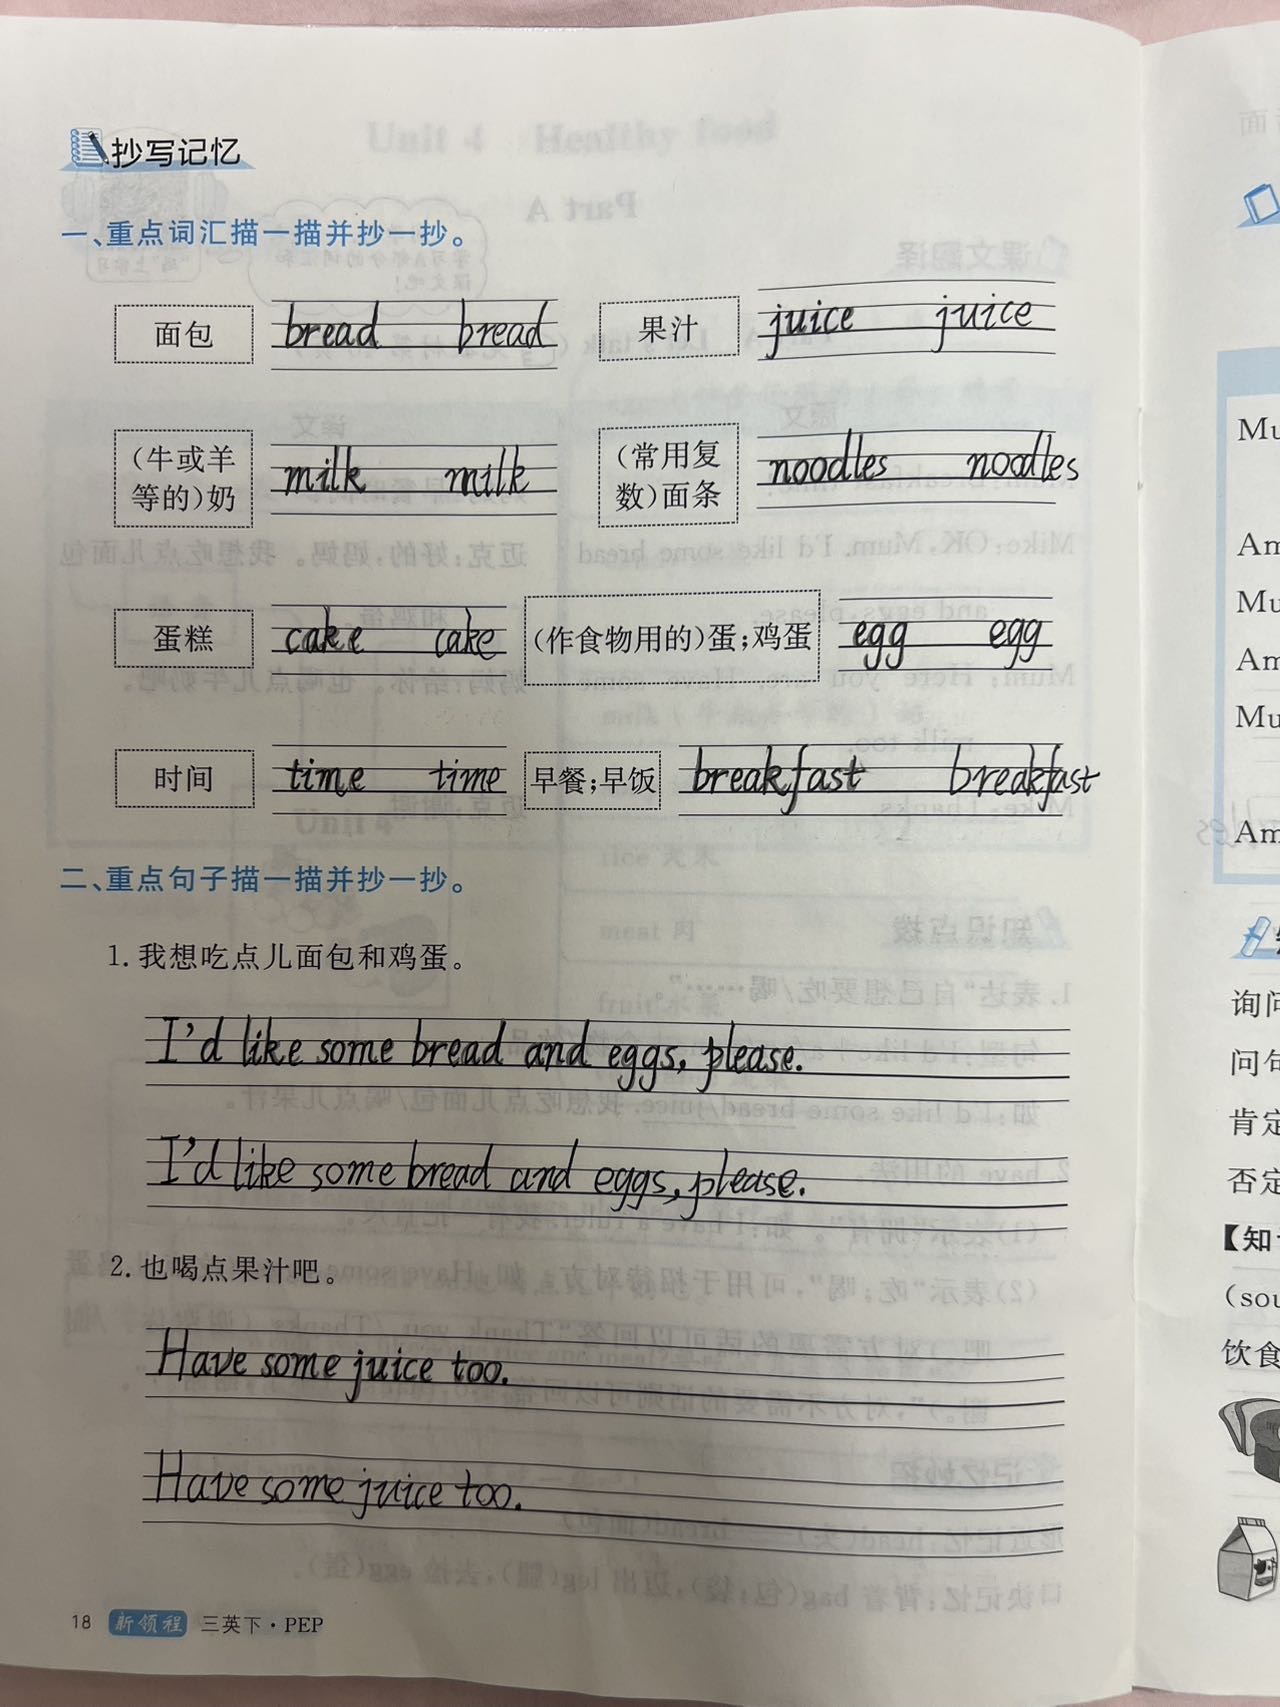 抄写记忆
一、重点词汇描一描并抄一抄。
面包 bread bread 果汁 juice juice
(牛或羊等的)奶 milk milk (常用复数)面条 noodles noodles
蛋糕 cake cake (作食物用的)蛋;鸡蛋 egg egg
时间 time time 早餐;早饭 breakfast breakfast
二、重点句子描一描并抄一抄。
1. 我想吃点儿面包和鸡蛋。
I'd like some bread and eggs, please.
I'd like some bread and eggs, please.
2. 也喝点果汁吧。
Have some juice too.
Have some juice too.
18 新领程 三英下·PEP
Mu
Am
Mu
Am
Mu
Am
询问
问句
肯定
否定
【知
(sou
饮食